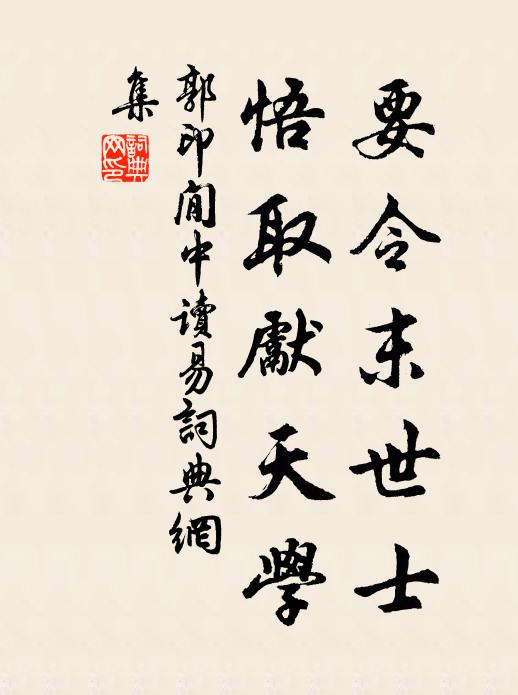 要令末世士
悟取獻天學
郭印閒中讀易詞典網
集
詞典網印